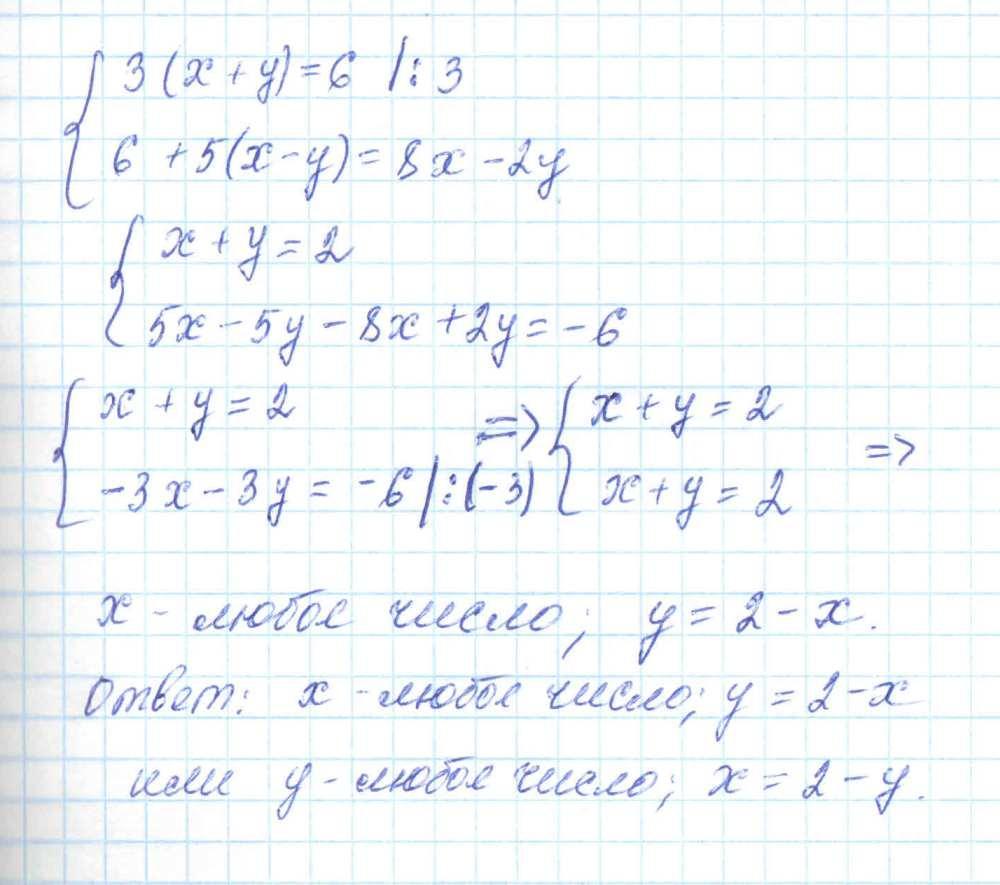 3(x+y)=6 |:3
6+5(x-y)=8x-2y
x+y=2
5x-5y-8x+2y=-6
x+y=2 => x+y=2 =>
-3x-3y=-6|:(-3) x+y=2
x - любое число; y=2-x.
Ответ: x - любое число; y=2-x
или y - любое число; x=2-y.